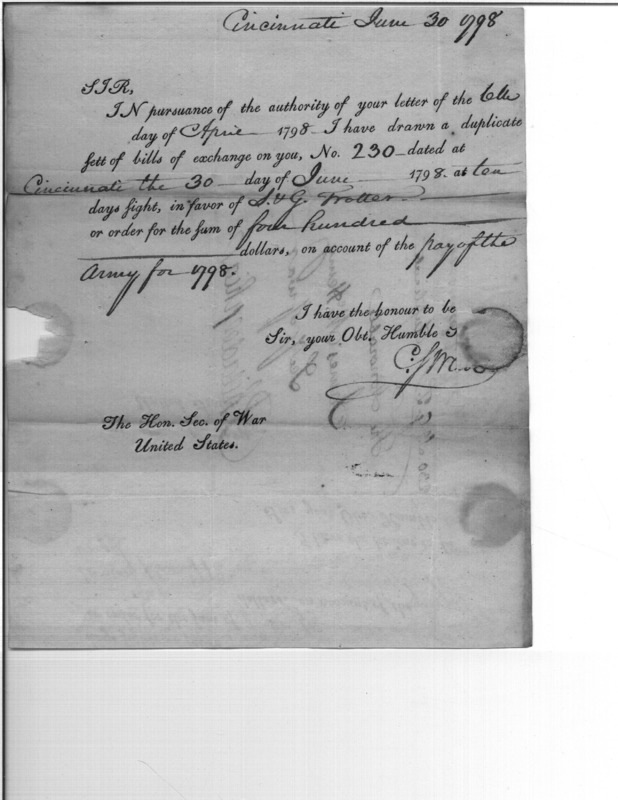 Cincinnati June 30 1798
SIR,
IN pursuance of the authority of your letter of the 6th
day of April 1798 I have drawn a duplicate
sett of bills of exchange on you, No. 230 dated at
Cincinnati the 30 day of June 1798. at ten
days sight, in favor of S. & G. Trotter
or order for the sum of four hundred
dollars, on account of the pay of the
Army for 1798.
I have the honour to be
Sir, your Obt. Humble S
The Hon. Sec. of War
United States.